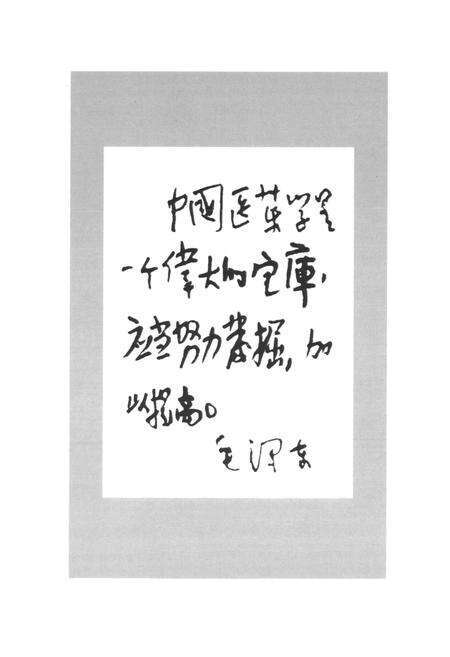 中國医葯学是
一个偉大的宝庫，
应当努力發掘，加
以提高。
毛泽东